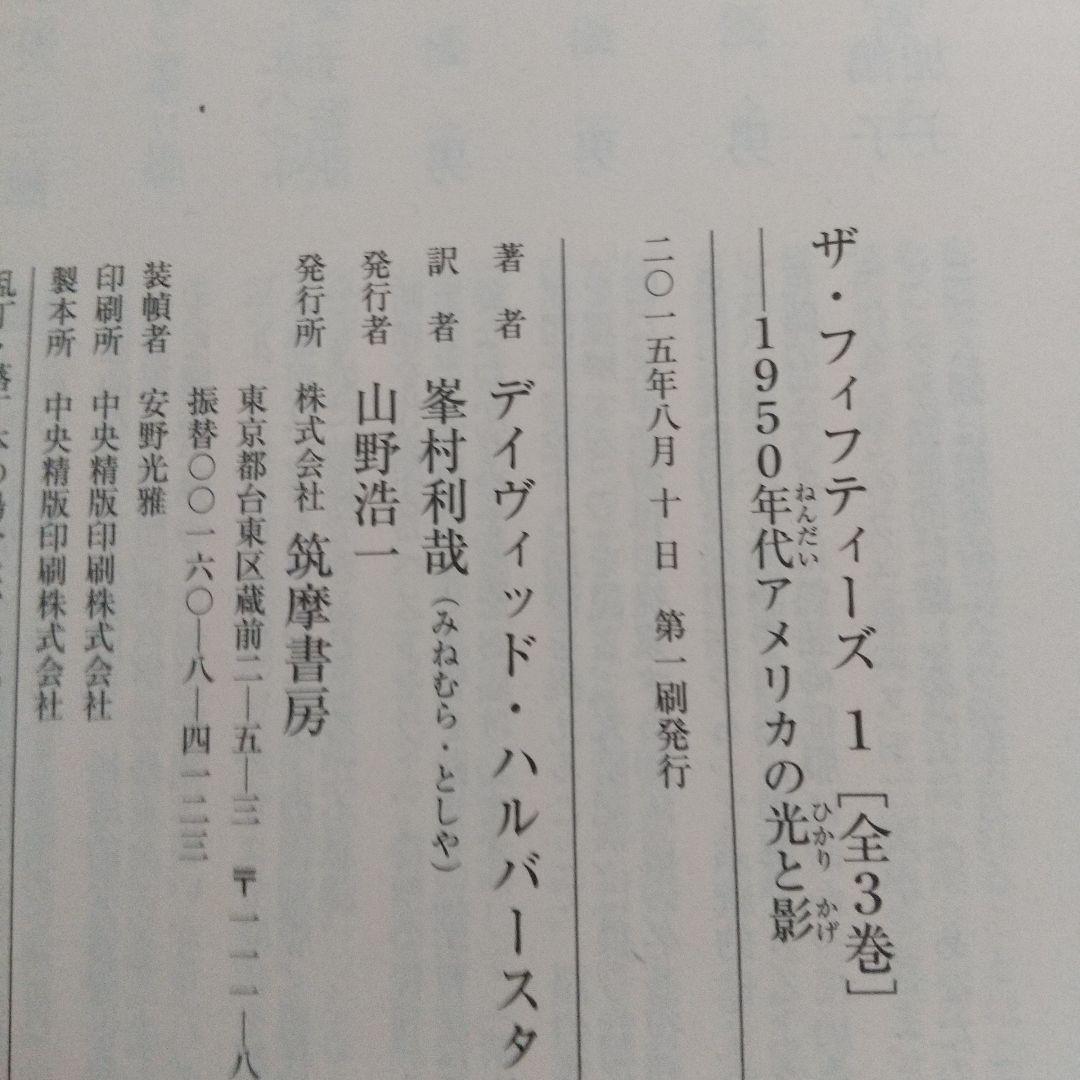 ザ・フィフティーズ 1 [全3巻]
――1950年代アメリカの光と影
ねんだい
ひかり かげ
二〇一五年八月十日 第一刷発行
著者 デイヴィッド・ハルバースタ
訳者 峯村利哉（みねむら・としや）
発行者 山野浩一
発行所 株式会社 筑摩書房
東京都台東区蔵前二―五―三 〒一一一―八
振替〇〇一六〇―八―四一二三
装幀者 安野光雅
印刷所 中央精版印刷株式会社
製本所 中央精版印刷株式会社